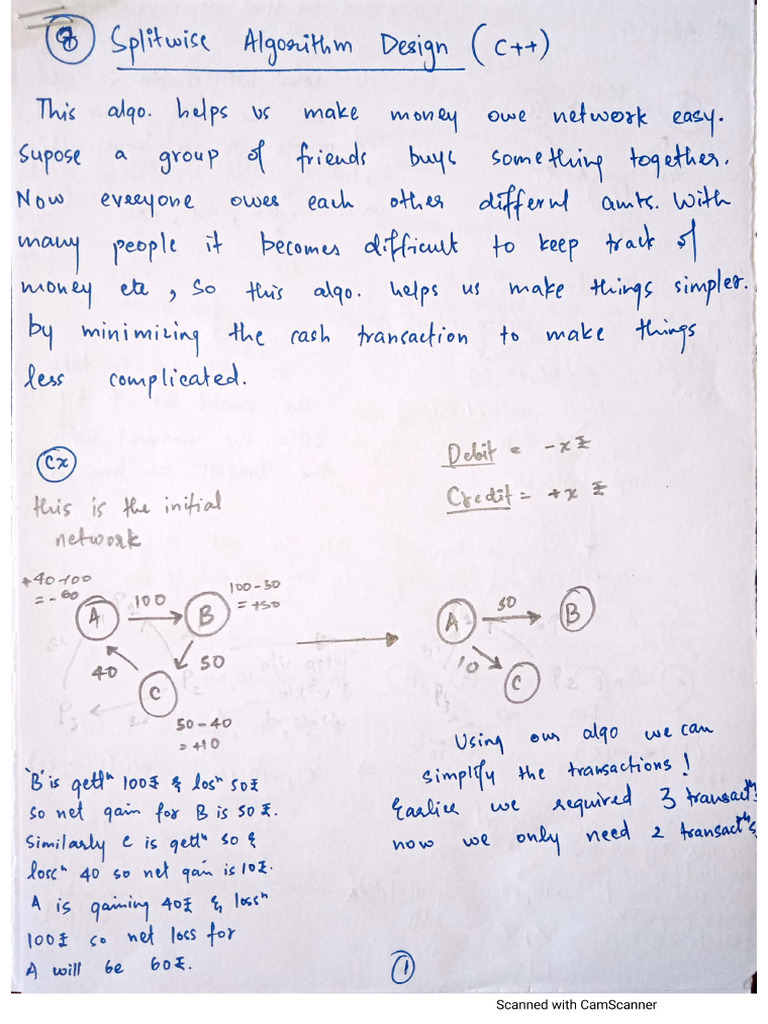 8 Splitwise Algorithm Design (C++)
This algo. helps us make money owe network easy.
Supose a group of friends buys something together.
Now everyone owes each other differnt amts. With
many people it becomes difficult to keep track of
money etc, so this algo. helps us make things simpler.
by minimizing the cash transaction to make things
less complicated.
ex
Debit = -x ₹
Credit = +x ₹
this is the initial
network
+40-100
= -60
A 100 B
100-50
= +50
40
50
C
50-40
= +10
A 50 B
10
C
'B' is gettⁿ 100₹ & losⁿ 50₹
so net gain for B is 50₹.
Similarly C is gettⁿ 50 &
lossⁿ 40 so net gain is 10₹.
A is gaining 40₹ & lossⁿ
100₹ so net loss for
A will be 60₹.
Using our algo we can
simplify the transactions!
Earlier we required 3 transactⁿs
now we only need 2 transactⁿs
1
Scanned with CamScanner